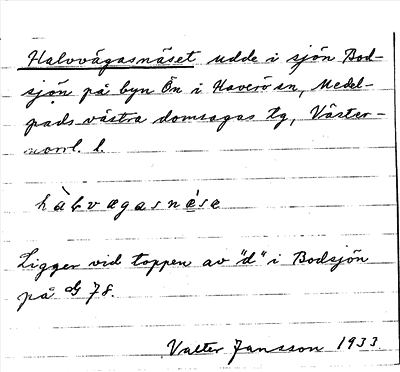 Halvvägasnäset udde i sjön Bod-
sjön på byn Ön i Haverö sn, Medel-
pads västra domsagas tg, Väster-
norrl. l.
hàlvægasnèsæ
Ligger vid toppen av "d" i Bodsjön
på 78.
Valter Jansson 1933.